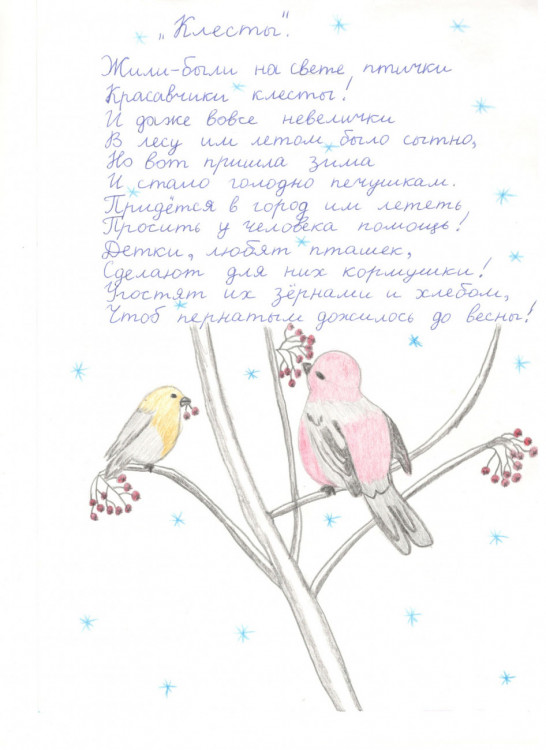 „Клесты".
Жили-были на свете птички
Красавчики клесты!
И даже вовсе невелички
В лесу им летом было сытно,
Но вот пришла зима
И стало голодно печушкам.
Придётся в город им лететь
Просить у человека помощь!
Детки, любят пташек,
Сделают для них кормушки!
Угостят их зёрнами и хлебом,
Чтоб пернатым дожилось до весны!